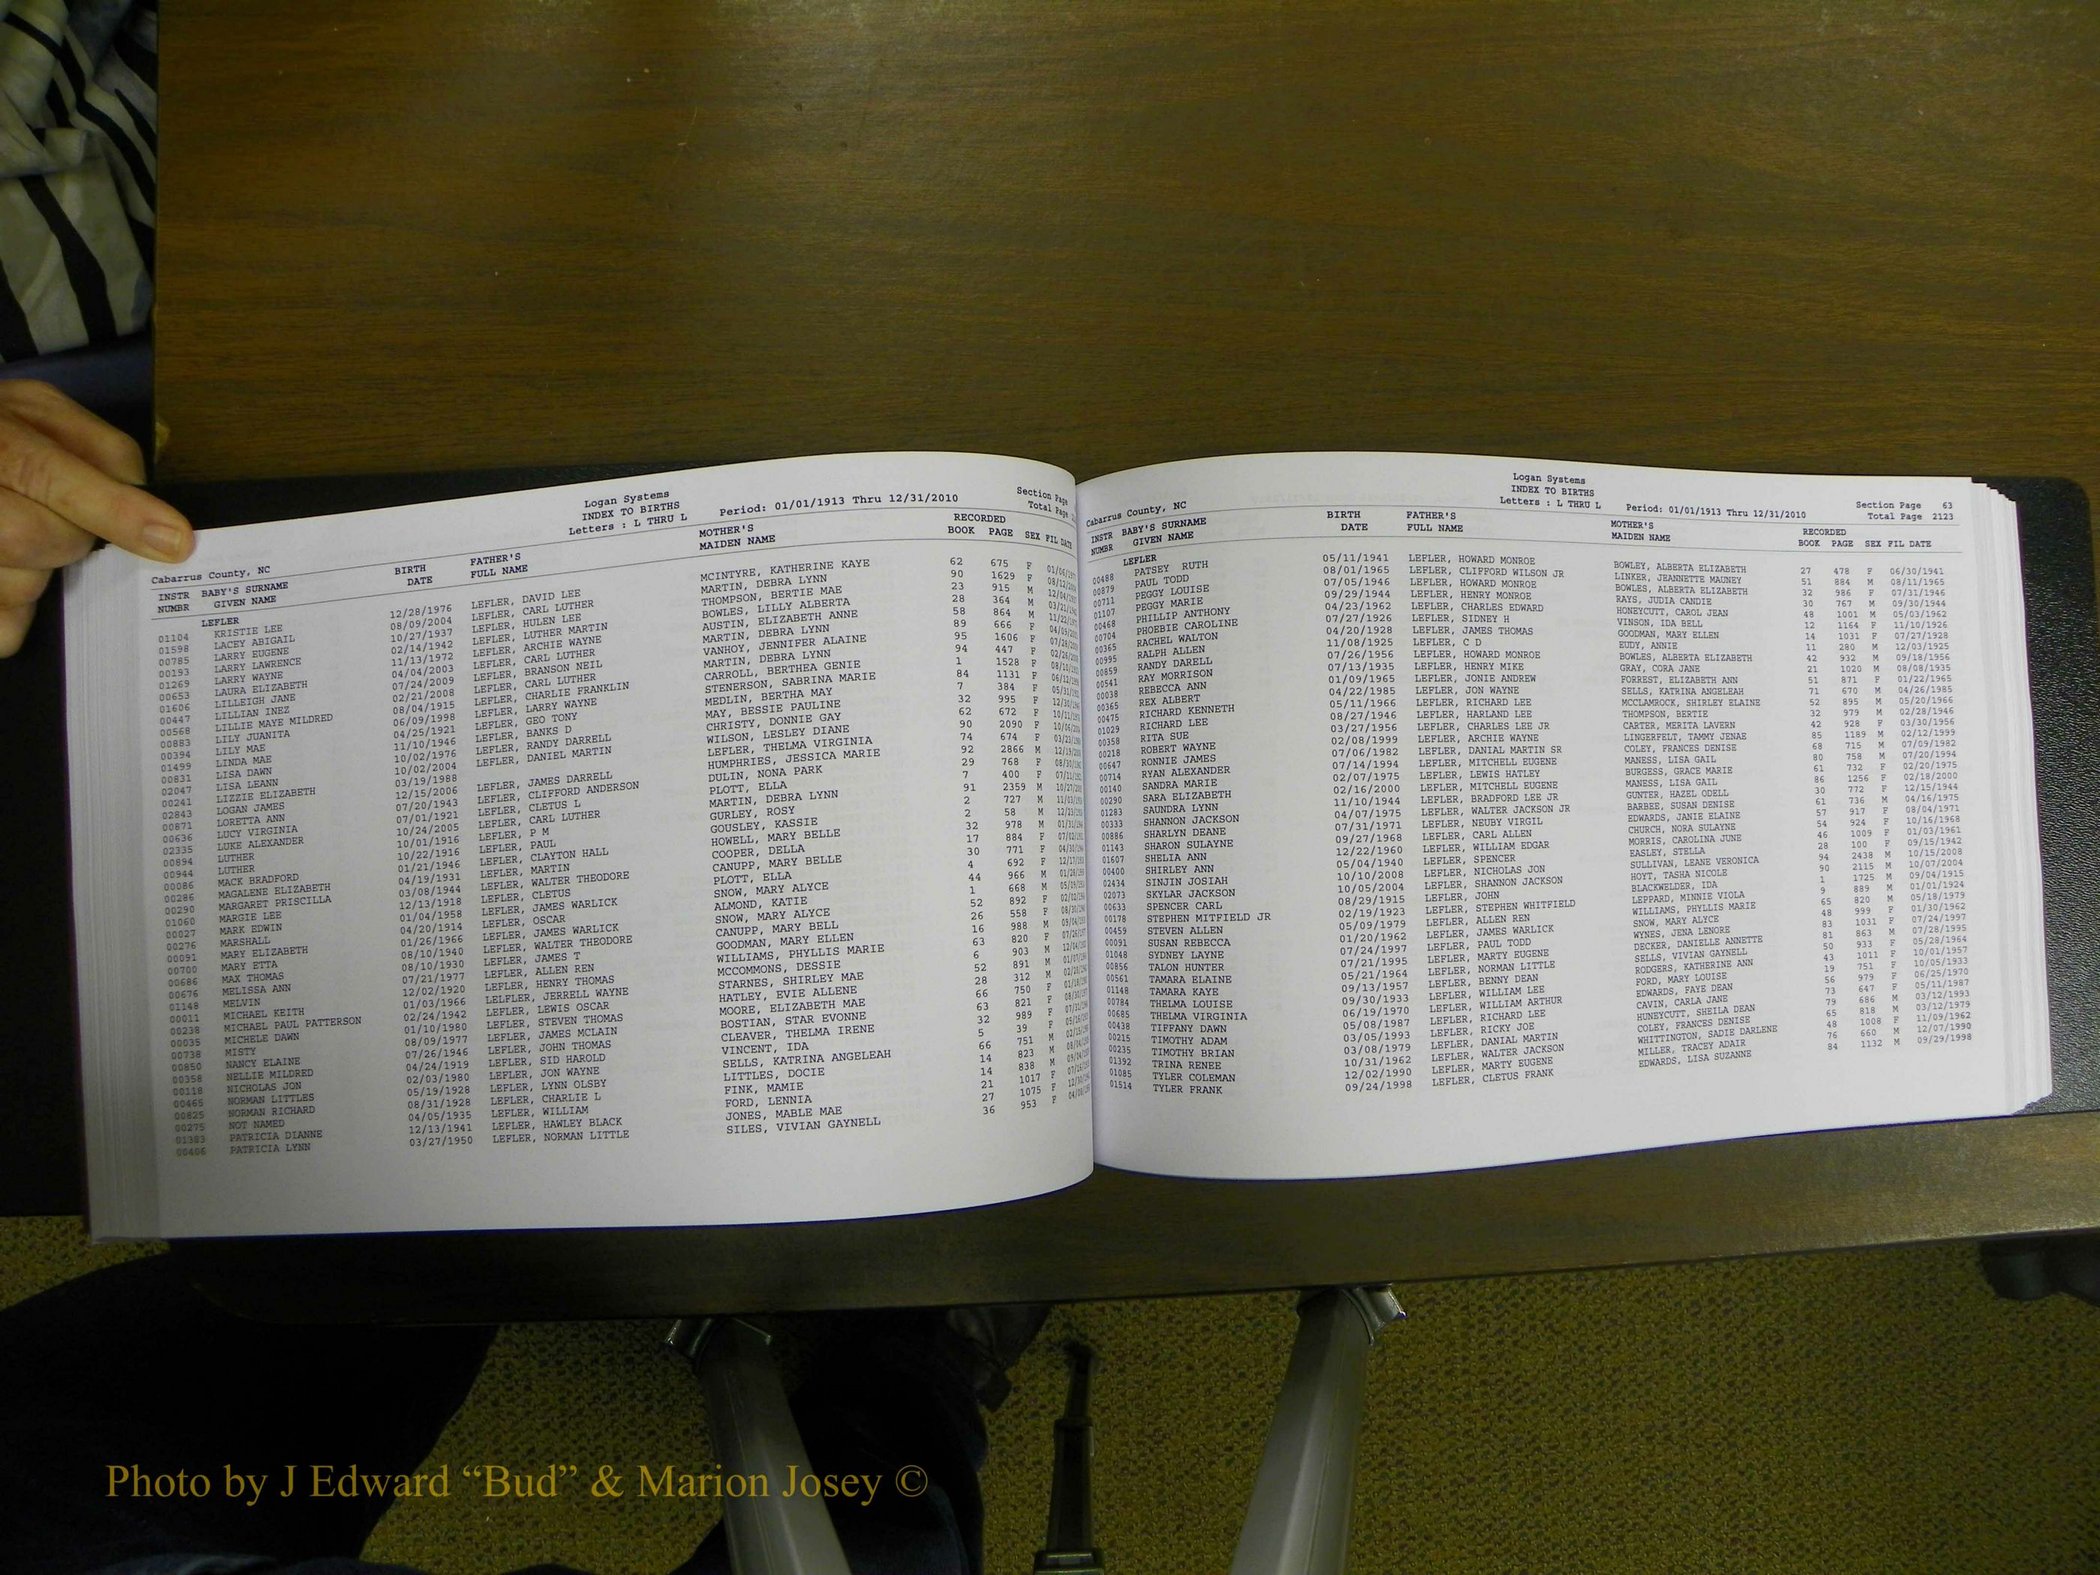 Logan Systems
INDEX TO BIRTHS
Cabarrus County, NC Letters : L THRU L Period: 01/01/1913 Thru 12/31/2010 Section Page
Total Page
INSTR BABY'S SURNAME BIRTH FATHER'S MOTHER'S RECORDED
NUMBR GIVEN NAME DATE FULL NAME MAIDEN NAME BOOK PAGE SEX FIL DATE
LEFLER
01104 KRISTIE LEE 12/28/1976 LEFLER, DAVID LEE MCINTYRE, KATHERINE KAYE 62 675 F
01598 LACEY ABIGAIL 08/09/2004 LEFLER, CARL LUTHER MARTIN, DEBRA LYNN 90 1629 F
00785 LARRY EUGENE 10/27/1937 LEFLER, HULEN LEE THOMPSON, BERTIE MAE 23 915 M
00193 LARRY LAWRENCE 02/14/1942 LEFLER, LUTHER MARTIN BOWLES, LILLY ALBERTA 28 364 M
01269 LARRY WAYNE 11/13/1972 LEFLER, ARCHIE WAYNE AUSTIN, ELIZABETH ANNE 58 864 M
00653 LAURA ELIZABETH 04/04/2003 LEFLER, CARL LUTHER MARTIN, DEBRA LYNN 89 666 F
01606 LILLEIGH JANE 07/24/2009 LEFLER, BRANSON NEIL VANHOY, JENNIFER ALAINE 95 1606 F
00447 LILLIAN INEZ 02/21/2008 LEFLER, CARL LUTHER MARTIN, DEBRA LYNN 94 447 F
00568 LILLIE MAYE MILDRED 08/04/1915 LEFLER, CHARLIE FRANKLIN CARROLL, BERTHEA GENIE 1 1528 F
00883 LILY JUANITA 06/09/1998 LEFLER, LARRY WAYNE STENERSON, SABRINA MARIE 84 1131 F
00394 LILY MAE 04/25/1921 LEFLER, GEO TONY MEDLIN, BERTHA MAY 7 384 F
01499 LINDA MAE 11/10/1946 LEFLER, BANKS D MAY, BESSIE PAULINE 32 995 F
00831 LISA DAWN 10/02/1976 LEFLER, RANDY DARRELL CHRISTY, DONNIE GAY 62 672 F
02047 LISA LEANN 10/02/2004 LEFLER, DANIEL MARTIN WILSON, LESLEY DIANE 90 2090 F
00241 LIZZIE ELIZABETH 03/19/1988 LEFLER, THELMA VIRGINIA 74 674 F
02843 LOGAN JAMES 12/15/2006 LEFLER, JAMES DARRELL HUMPHRIES, JESSICA MARIE 92 2866 M
00871 LORETTA ANN 07/20/1943 LEFLER, CLIFFORD ANDERSON DULIN, NONA PARK 29 768 F
00636 LUCY VIRGINIA 07/01/1921 LEFLER, CLETUS L PLOTT, ELLA 7 400 F
02335 LUKE ALEXANDER 10/24/2005 LEFLER, CARL LUTHER MARTIN, DEBRA LYNN 91 2359 M
00894 LUTHER 10/01/1916 LEFLER, P M GURLEY, ROSY 2 727 M
00944 LUTHER 10/22/1916 LEFLER, PAUL GOUSLEY, KASSIE 2 58 M
00086 MACK BRADFORD 01/21/1946 LEFLER, CLAYTON HALL HOWELL, MARY BELLE 32 978 M
00286 MAGALENE ELIZABETH 04/19/1931 LEFLER, MARTIN COOPER, DELLA 17 884 F
00290 MARGARET PRISCILLA 03/08/1944 LEFLER, WALTER THEODORE CANUPP, MARY BELLE 30 771 F
01060 MARGIE LEE 12/13/1918 LEFLER, CLETUS PLOTT, ELLA 4 692 F
00027 MARK EDWIN 01/04/1958 LEFLER, JAMES WARLICK SNOW, MARY ALYCE 44 966 M
00276 MARSHALL 04/20/1914 LEFLER, OSCAR ALMOND, KATIE 1 668 M
00091 MARY ELIZABETH 01/26/1966 LEFLER, JAMES WARLICK SNOW, MARY ALYCE 52 892 F
00700 MARY ETTA 08/10/1940 LEFLER, WALTER THEODORE CANUPP, MARY BELL 26 558 F
00686 MAX THOMAS 08/10/1930 LEFLER, JAMES T GOODMAN, MARY ELLEN 16 988 M
00676 MELISSA ANN 07/21/1977 LEFLER, ALLEN REN WILLIAMS, PHYLLIS MARIE 63 820 F
01148 MELVIN 12/02/1920 LEFLER, HENRY THOMAS MCCOMMONS, DESSIE 6 903 M
00011 MICHAEL KEITH 01/03/1966 LELFLER, JERRELL WAYNE STARNES, SHIRLEY MAE 52 891 M
00238 MICHAEL PAUL PATTERSON 02/24/1942 LEFLER, LEWIS OSCAR HATLEY, EVIE ALLENE 28 312 M
00035 MICHELE DAWN 01/10/1980 LEFLER, STEVEN THOMAS MOORE, ELIZABETH MAE 66 750 F
00738 MISTY 08/09/1977 LEFLER, JAMES MCLAIN BOSTIAN, STAR EVONNE 63 821 F
00850 NANCY ELAINE 07/26/1946 LEFLER, JOHN THOMAS CLEAVER, THELMA IRENE 32 989 F
00358 NELLIE MILDRED 04/24/1919 LEFLER, SID HAROLD VINCENT, IDA 5 39 F
00118 NICHOLAS JON 02/03/1980 LEFLER, JON WAYNE SELLS, KATRINA ANGELEAH 66 751 M
00465 NORMAN LITTLES 05/19/1928 LEFLER, LYNN OLSBY LITTLES, DOCIE 14 823 M
00825 NORMAN RICHARD 08/31/1928 LEFLER, CHARLIE L FINK, MAMIE 14 838 M
00275 NOT NAMED 04/05/1935 LEFLER, WILLIAM FORD, LENNIA 21 1017 F
01383 PATRICIA DIANNE 12/13/1941 LEFLER, HAWLEY BLACK JONES, MABLE MAE 27 1075 F
00406 PATRICIA LYNN 03/27/1950 LEFLER, NORMAN LITTLE SILES, VIVIAN GAYNELL 36 953 F
Logan Systems
INDEX TO BIRTHS
Cabarrus County, NC Letters : L THRU L Period: 01/01/1913 Thru 12/31/2010 Section Page 63
Total Page 2123
INSTR BABY'S SURNAME BIRTH FATHER'S MOTHER'S RECORDED
NUMBR GIVEN NAME DATE FULL NAME MAIDEN NAME BOOK PAGE SEX FIL DATE
LEFLER
00488 PATSEY RUTH 05/11/1941 LEFLER, HOWARD MONROE BOWLEY, ALBERTA ELIZABETH 27 478 F 06/30/1941
00879 PAUL TODD 08/01/1965 LEFLER, CLIFFORD WILSON JR LINKER, JEANNETTE MAUNEY 51 884 M 08/11/1965
00711 PEGGY LOUISE 07/05/1946 LEFLER, HOWARD MONROE BOWLES, ALBERTA ELIZABETH 32 986 F 07/31/1946
01107 PEGGY MARIE 09/29/1944 LEFLER, HENRY MONROE RAYS, JUDIA CANDIE 30 767 M 09/30/1944
00468 PHILLIP ANTHONY 04/23/1962 LEFLER, CHARLES EDWARD HONEYCUTT, CAROL JEAN 48 1001 M 05/03/1962
00704 PHOEBIE CAROLINE 07/27/1926 LEFLER, SIDNEY H VINSON, IDA BELL 12 1164 F 11/10/1926
00365 RACHEL WALTON 04/20/1928 LEFLER, JAMES THOMAS GOODMAN, MARY ELLEN 14 1031 F 07/27/1928
00995 RALPH ALLEN 11/08/1925 LEFLER, C D EUDY, ANNIE 11 280 M 12/03/1925
00859 RANDY DARELL 07/26/1956 LEFLER, HOWARD MONROE BOWLES, ALBERTA ELIZABETH 42 932 M 09/18/1956
00541 RAY MORRISON 07/13/1935 LEFLER, HENRY MIKE GRAY, CORA JANE 21 1020 M 08/08/1935
00038 REBECCA ANN 01/09/1965 LEFLER, JONIE ANDREW FORREST, ELIZABETH ANN 51 871 F 01/22/1965
00365 REX ALBERT 04/22/1985 LEFLER, JON WAYNE SELLS, KATRINA ANGELEAH 71 670 M 04/26/1985
00475 RICHARD KENNETH 05/11/1966 LEFLER, RICHARD LEE MCCLAMROCK, SHIRLEY ELAINE 52 895 M 05/20/1966
01029 RICHARD LEE 08/27/1946 LEFLER, HARLAND LEE THOMPSON, BERTIE 32 979 M 02/28/1946
00358 RITA SUE 03/27/1956 LEFLER, CHARLES LEE JR CARTER, MERITA LAVERN 42 928 F 03/30/1956
00218 ROBERT WAYNE 02/08/1999 LEFLER, ARCHIE WAYNE LINGERFELT, TAMMY JENAE 85 1189 M 02/12/1999
00647 RONNIE JAMES 07/06/1982 LEFLER, DANIAL MARTIN SR COLEY, FRANCES DENISE 68 715 M 07/09/1982
00714 RYAN ALEXANDER 07/14/1994 LEFLER, MITCHELL EUGENE MANESS, LISA GAIL 80 758 M 07/20/1994
00140 SANDRA MARIE 02/07/1975 LEFLER, LEWIS HATLEY BURGESS, GRACE MARIE 61 732 F 02/20/1975
00290 SARA ELIZABETH 02/16/2000 LEFLER, MITCHELL EUGENE MANESS, LISA GAIL 86 1256 F 02/18/2000
01283 SAUNDRA LYNN 11/10/1944 LEFLER, BRADFORD LEE JR GUNTER, HAZEL ODELL 30 772 F 12/15/1944
00333 SHANNON JACKSON 04/07/1975 LEFLER, WALTER JACKSON JR BARBEE, SUSAN DENISE 61 736 M 04/16/1975
00886 SHARLYN DEANE 07/31/1971 LEFLER, NEUBY VIRGIL EDWARDS, JANIE ELAINE 57 917 F 08/04/1971
01143 SHARON SULAYNE 09/27/1968 LEFLER, CARL ALLEN CHURCH, NORA SULAYNE 54 924 F 10/16/1968
01607 SHELIA ANN 12/22/1960 LEFLER, WILLIAM EDGAR MORRIS, CAROLINA JUNE 46 1009 F 01/03/1961
00400 SHIRLEY ANN 05/04/1940 LEFLER, SPENCER EASLEY, STELLA 28 100 F 09/15/1942
02434 SINJIN JOSIAH 10/10/2008 LEFLER, NICHOLAS JON SULLIVAN, LEANE VERONICA 94 2438 M 10/15/2008
02073 SKYLAR JACKSON 10/05/2004 LEFLER, SHANNON JACKSON HOYT, TASHA NICOLE 90 2115 M 10/07/2004
00633 SPENCER CARL 08/29/1915 LEFLER, JOHN BLACKWELDER, IDA 1 1725 M 09/04/1915
00178 STEPHEN MITFIELD JR 02/19/1923 LEFLER, STEPHEN WHITFIELD LEPPARD, MINNIE VIOLA 9 889 M 01/01/1924
00459 STEVEN ALLEN 05/09/1979 LEFLER, ALLEN REN WILLIAMS, PHYLLIS MARIE 65 820 M 05/18/1979
00091 SUSAN REBECCA 01/20/1962 LEFLER, JAMES WARLICK SNOW, MARY ALYCE 48 999 F 01/30/1962
01048 SYDNEY LAYNE 07/24/1997 LEFLER, PAUL TODD WYNES, JENA LENORE 83 1031 F 07/24/1997
00856 TALON HUNTER 07/21/1995 LEFLER, MARTY EUGENE DECKER, DANIELLE ANNETTE 81 863 M 07/28/1995
00561 TAMARA ELAINE 05/21/1964 LEFLER, NORMAN LITTLE SELLS, VIVIAN GAYNELL 50 933 F 05/28/1964
01148 TAMARA KAYE 09/13/1957 LEFLER, BENNY DEAN RODGERS, KATHERINE ANN 43 1011 F 10/01/1957
00784 THELMA LOUISE 09/30/1933 LEFLER, WILLIAM LEE FORD, MARY LOUISE 19 751 F 10/05/1933
00685 THELMA VIRGINIA 06/19/1970 LEFLER, WILLIAM ARTHUR EDWARDS, FAYE DEAN 56 979 F 06/25/1970
00438 TIFFANY DAWN 05/08/1987 LEFLER, RICHARD LEE CAVIN, CARLA JANE 73 647 F 05/11/1987
00215 TIMOTHY ADAM 03/05/1993 LEFLER, RICKY JOE HUNEYCUTT, SHEILA DEAN 79 686 M 03/12/1993
00235 TIMOTHY BRIAN 03/08/1979 LEFLER, DANIAL MARTIN COLEY, FRANCES DENISE 65 818 M 03/12/1979
01392 TRINA RENEE 10/31/1962 LEFLER, WALTER JACKSON WHITTINGTON, SADIE DARLENE 48 1008 F 11/09/1962
01085 TYLER COLEMAN 12/02/1990 LEFLER, MARTY EUGENE MILLER, TRACEY ADAIR 76 660 M 12/07/1990
01514 TYLER FRANK 09/24/1998 LEFLER, CLETUS FRANK EDWARDS, LISA SUZANNE 84 1132 M 09/29/1998
Photo by J Edward “Bud” & Marion Josey ©